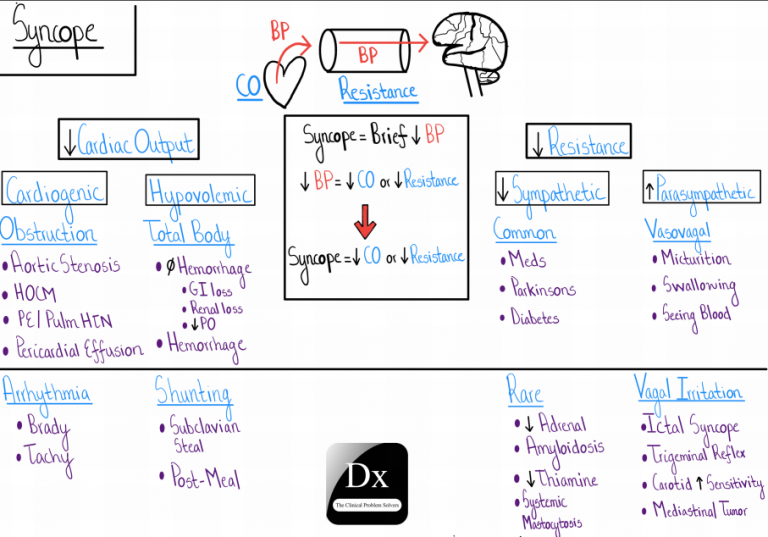 Syncope
BP
BP
CO
Resistance
↓Cardiac Output
Syncope = Brief ↓ BP
↓ BP = ↓ CO or ↓ Resistance
Syncope = ↓ CO or ↓ Resistance
↓ Resistance
Cardiogenic
Obstruction
• Aortic Stenosis
• HOCM
• PE/Pulm HTN
• Pericardial Effusion
Hypovolemic
Total Body
• Ø Hemorrhage
• GI loss
• Renal loss
• ↓PO
• Hemorrhage
↓ Sympathetic
Common
• Meds
• Parkinsons
• Diabetes
↑ Parasympathetic
Vasovagal
• Micturition
• Swallowing
• Seeing Blood
Arrhythmia
• Brady
• Tachy
Shunting
• Subclavian
Steal
• Post-Meal
Dx
The Clinical Problem Solvers
Rare
• ↓ Adrenal
• Amyloidosis
• ↓ Thiamine
• Systemic
Mastocytosis
Vagal Irritation
• Ictal Syncope
• Trigeminal Reflex
• Carotid ↑ Sensitivity
• Mediastinal Tumor